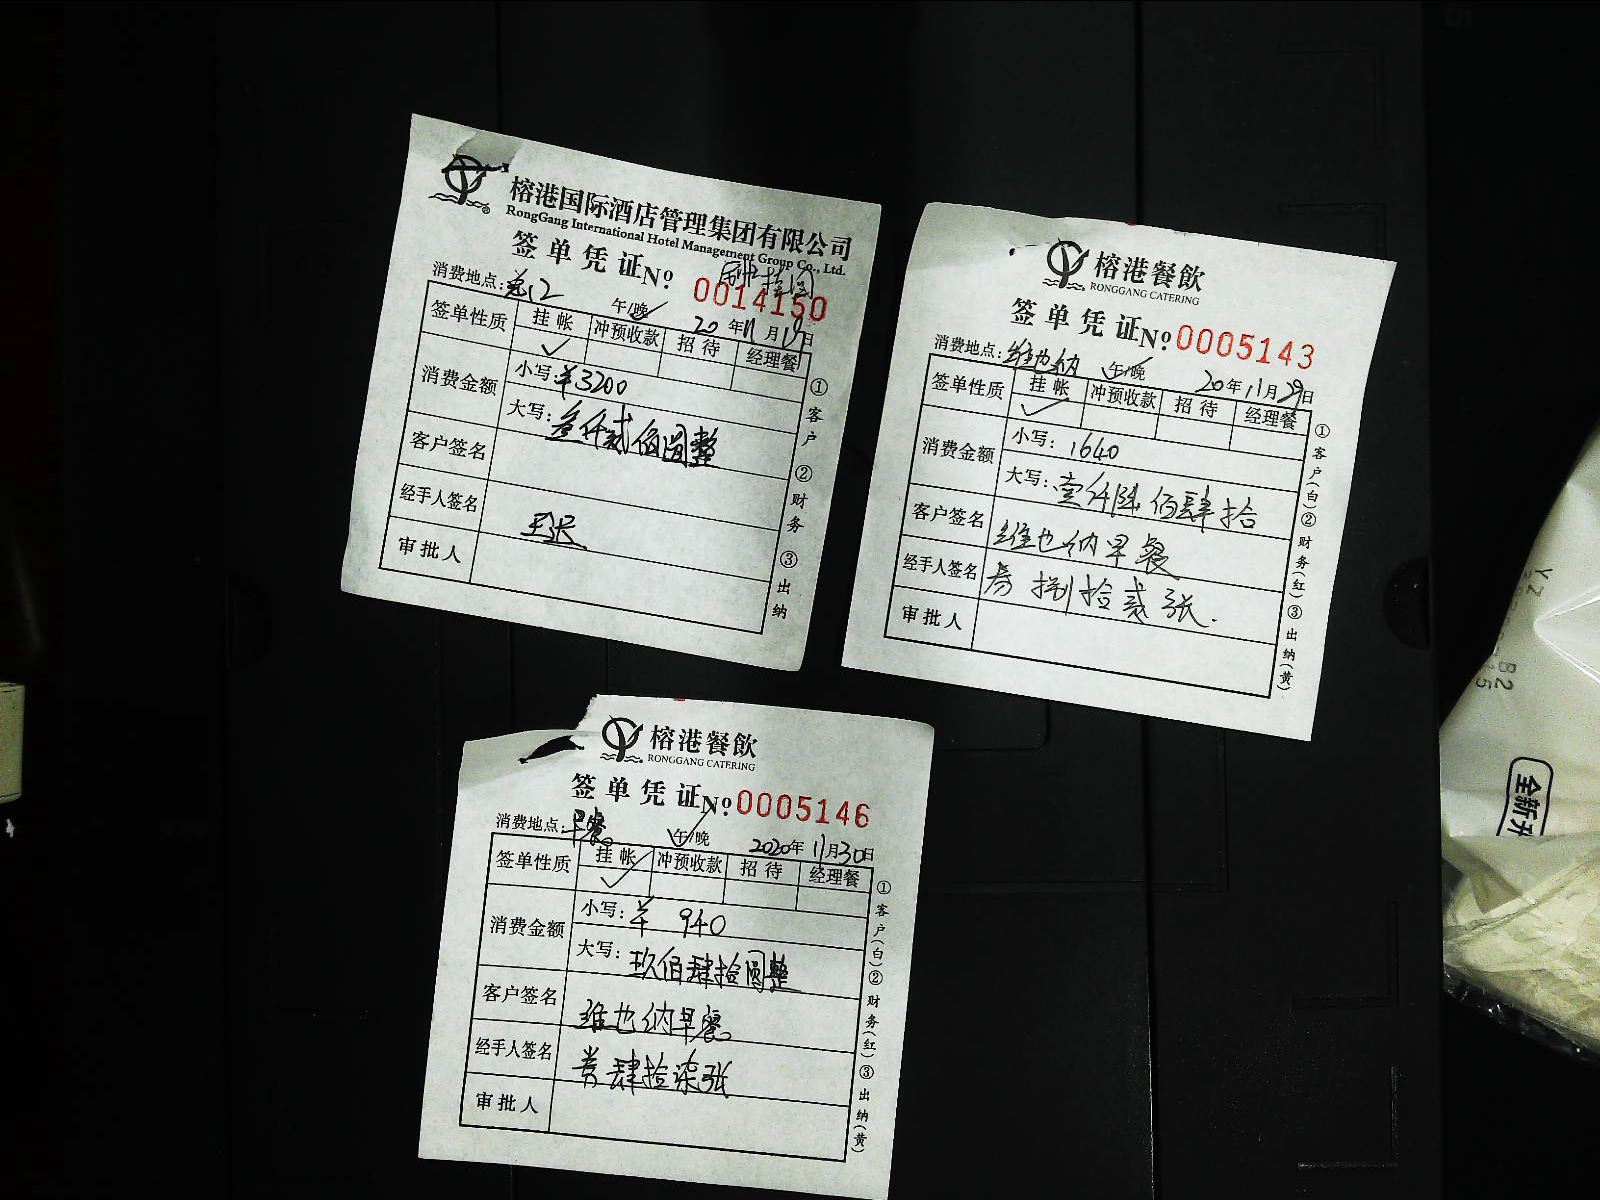 榕港国际酒店管理集团有限公司
RongGang International Hotel Management Group Co., Ltd.
签单凭证 No: 0014150
消费地点: 午/晚 20 年 11 月 19 日
签单性质 挂帐 冲预收款 招待 经理餐
消费金额 小写: ¥3200
大写: 叁仟贰佰圆整
客户签名
经手人签名
审批人
① 客户 ② 财务 ③ 出纳
榕港餐飲
RONGGANG CATERING
签单凭证 No: 0005143
消费地点: 维也纳 午/晚 20 年 11 月 29 日
签单性质 挂帐 冲预收款 招待 经理餐
消费金额 小写: 1640
大写: 壹仟陆佰肆拾
客户签名 维也纳早餐
经手人签名 券捌拾贰张.
审批人
① 客户(白) ② 财务(红) ③ 出纳(黄)
榕港餐飲
RONGGANG CATERING
签单凭证 No: 0005146
消费地点: 早餐 午/晚 2020 年 11 月 30 日
签单性质 挂帐 冲预收款 招待 经理餐
消费金额 小写: ¥ 940
大写: 玖佰肆拾圆整
客户签名 维也纳早餐
经手人签名 券肆拾柒张
审批人
① 客户(白) ② 财务(红) ③ 出纳(黄)
全新升